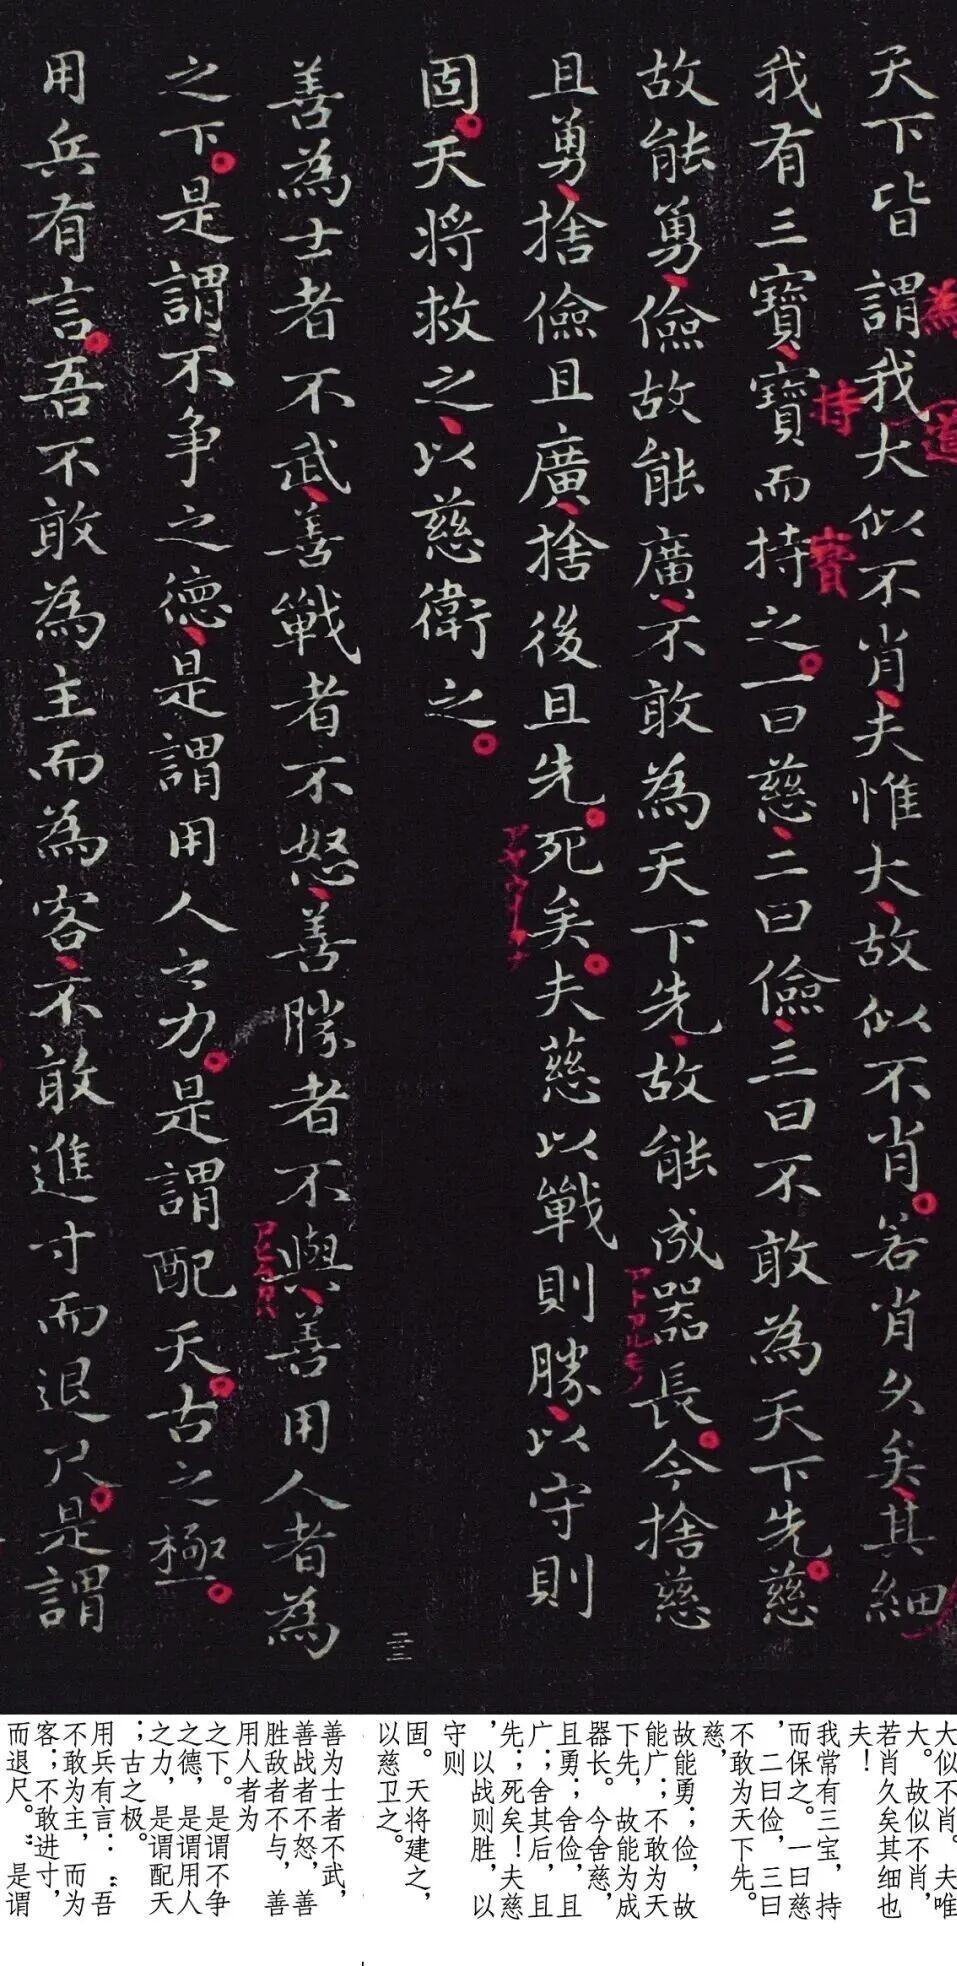 天下皆謂我大似不肖夫惟大故似不肖若肖久矣其細
我有三寶寶而持之一曰慈二曰儉三曰不敢為天下先慈
故能勇儉故能廣不敢為天下先故能成器長今捨慈
且勇捨儉且廣捨後且先死矣夫慈以戰則勝以守則
固天將救之以慈衛之
善為士者不武善戰者不怒善勝者不與善用人者為
之下是謂不争之德是謂用人之力是謂配天古之極
用兵有言吾不敢為主而為客不敢進寸而退尺是謂
為
道
持
寶
三三
大似不肖。夫唯
大。故似不肖,
若肖久矣其细也
夫!
我常有三宝,持
而保之。一曰慈
,二曰俭,三曰
不敢为天下先。
慈,
故能勇;俭,故
能广;不敢为天
下先,故能为成
器长。今舍慈,
且勇;舍俭,且
广;舍其后,且
先;死矣!夫慈
,以战则胜,以
守则
固。天将建之,
以慈卫之。
善为士者不武,
善战者不怒,善
胜敌者不与,善
用人者为
之下。是谓不争
之德,是谓用人
之力,是谓配天
;古之极。
用兵有言:“吾
不敢为主,而为
客;不敢进寸,
而退尺。”是谓